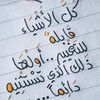 كل الأشياء
قابلة
للتغيير.. أولها
ذلك الذي تستثنيه
دائماً..